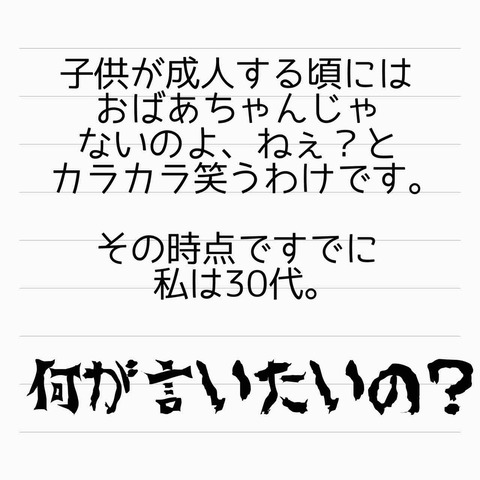 子供が成人する頃には
おばあちゃんじゃ
ないのよ、ねぇ？と
カラカラ笑うわけです。
その時点ですでに
私は30代。
何が言いたいの？